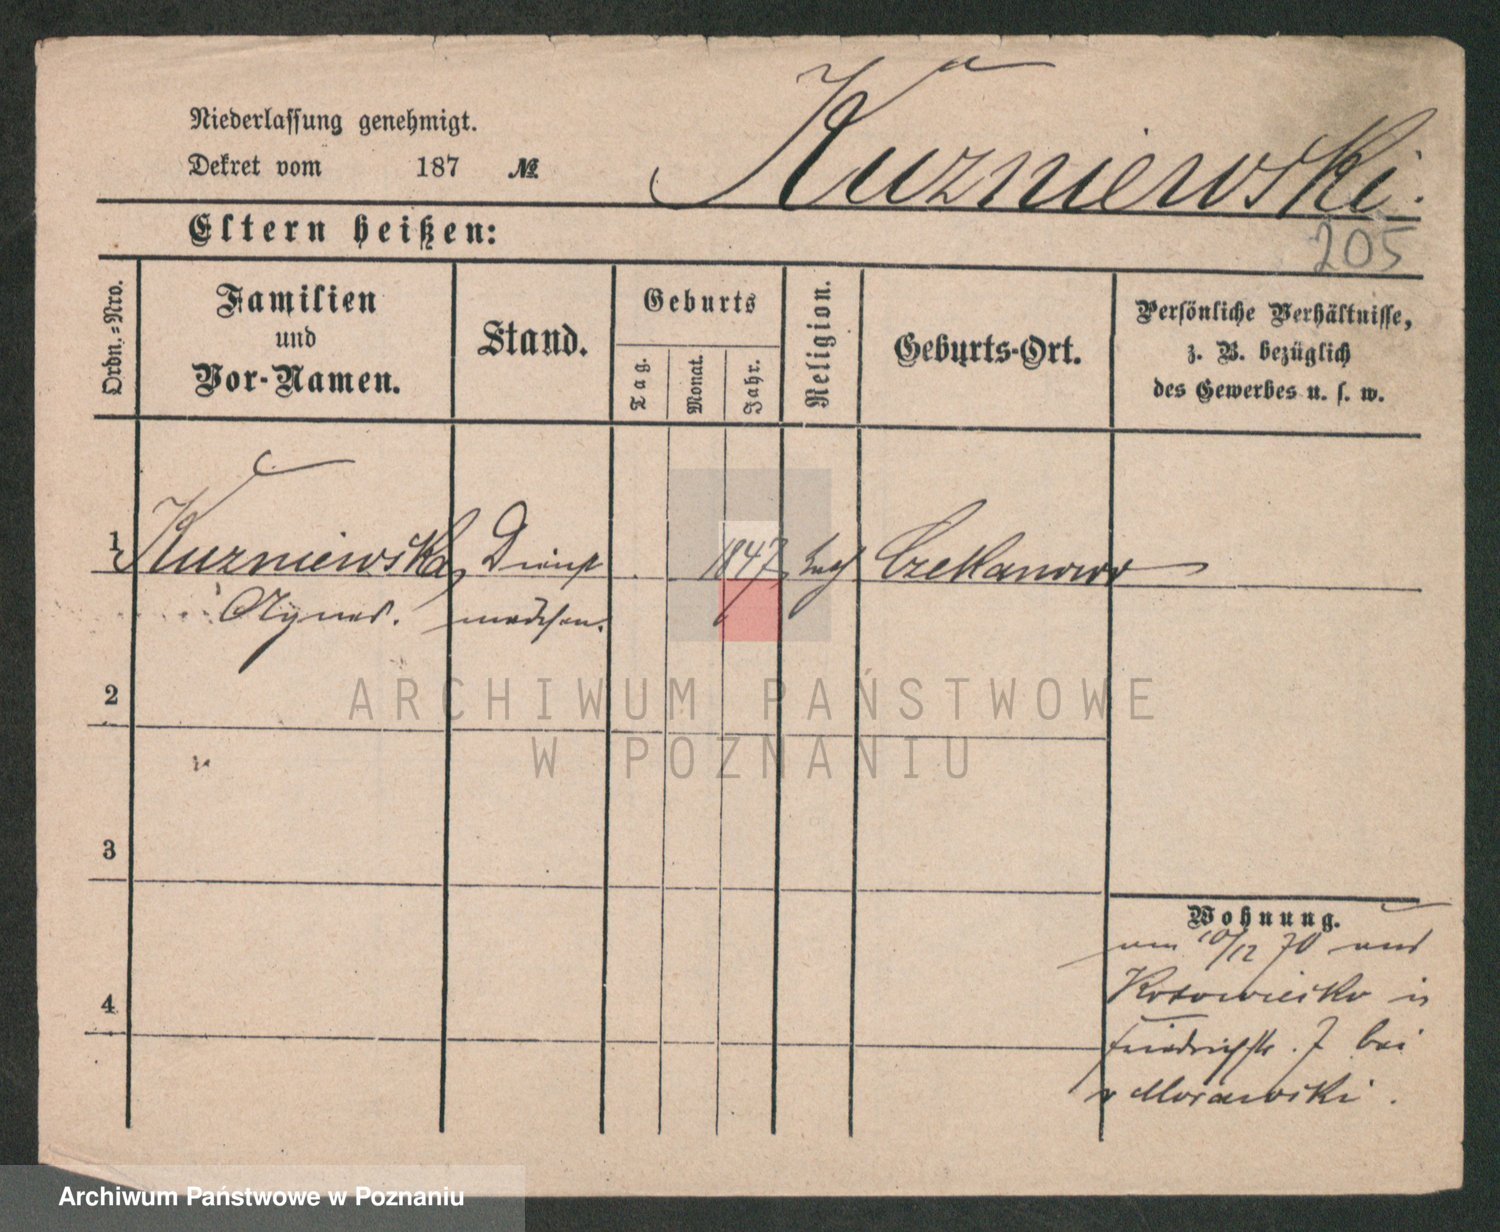 Niederlassung genehmigt.
Dekret vom 187 №
Kuzniewski.
205
Eltern heißen:
Ordn.-Nro.
Familien
und
Vor-Namen.
Stand.
Geburts
Tag.
Monat.
Jahr.
Religion.
Geburts-Ort.
Persönliche Verhältnisse,
z. B. bezüglich
des Gewerbes u. s. w.
1 Kuzniewska, Dienst 1847 kath Czekanowo
Agnes. mädchen.
2
3
4
Wohnung.
am 10/12 70 aus
in
Friedrichstr. 7 bei
v Morawski.
ARCHIWUM PAŃSTWOWE
W POZNANIU
Archiwum Państwowe w Poznaniu